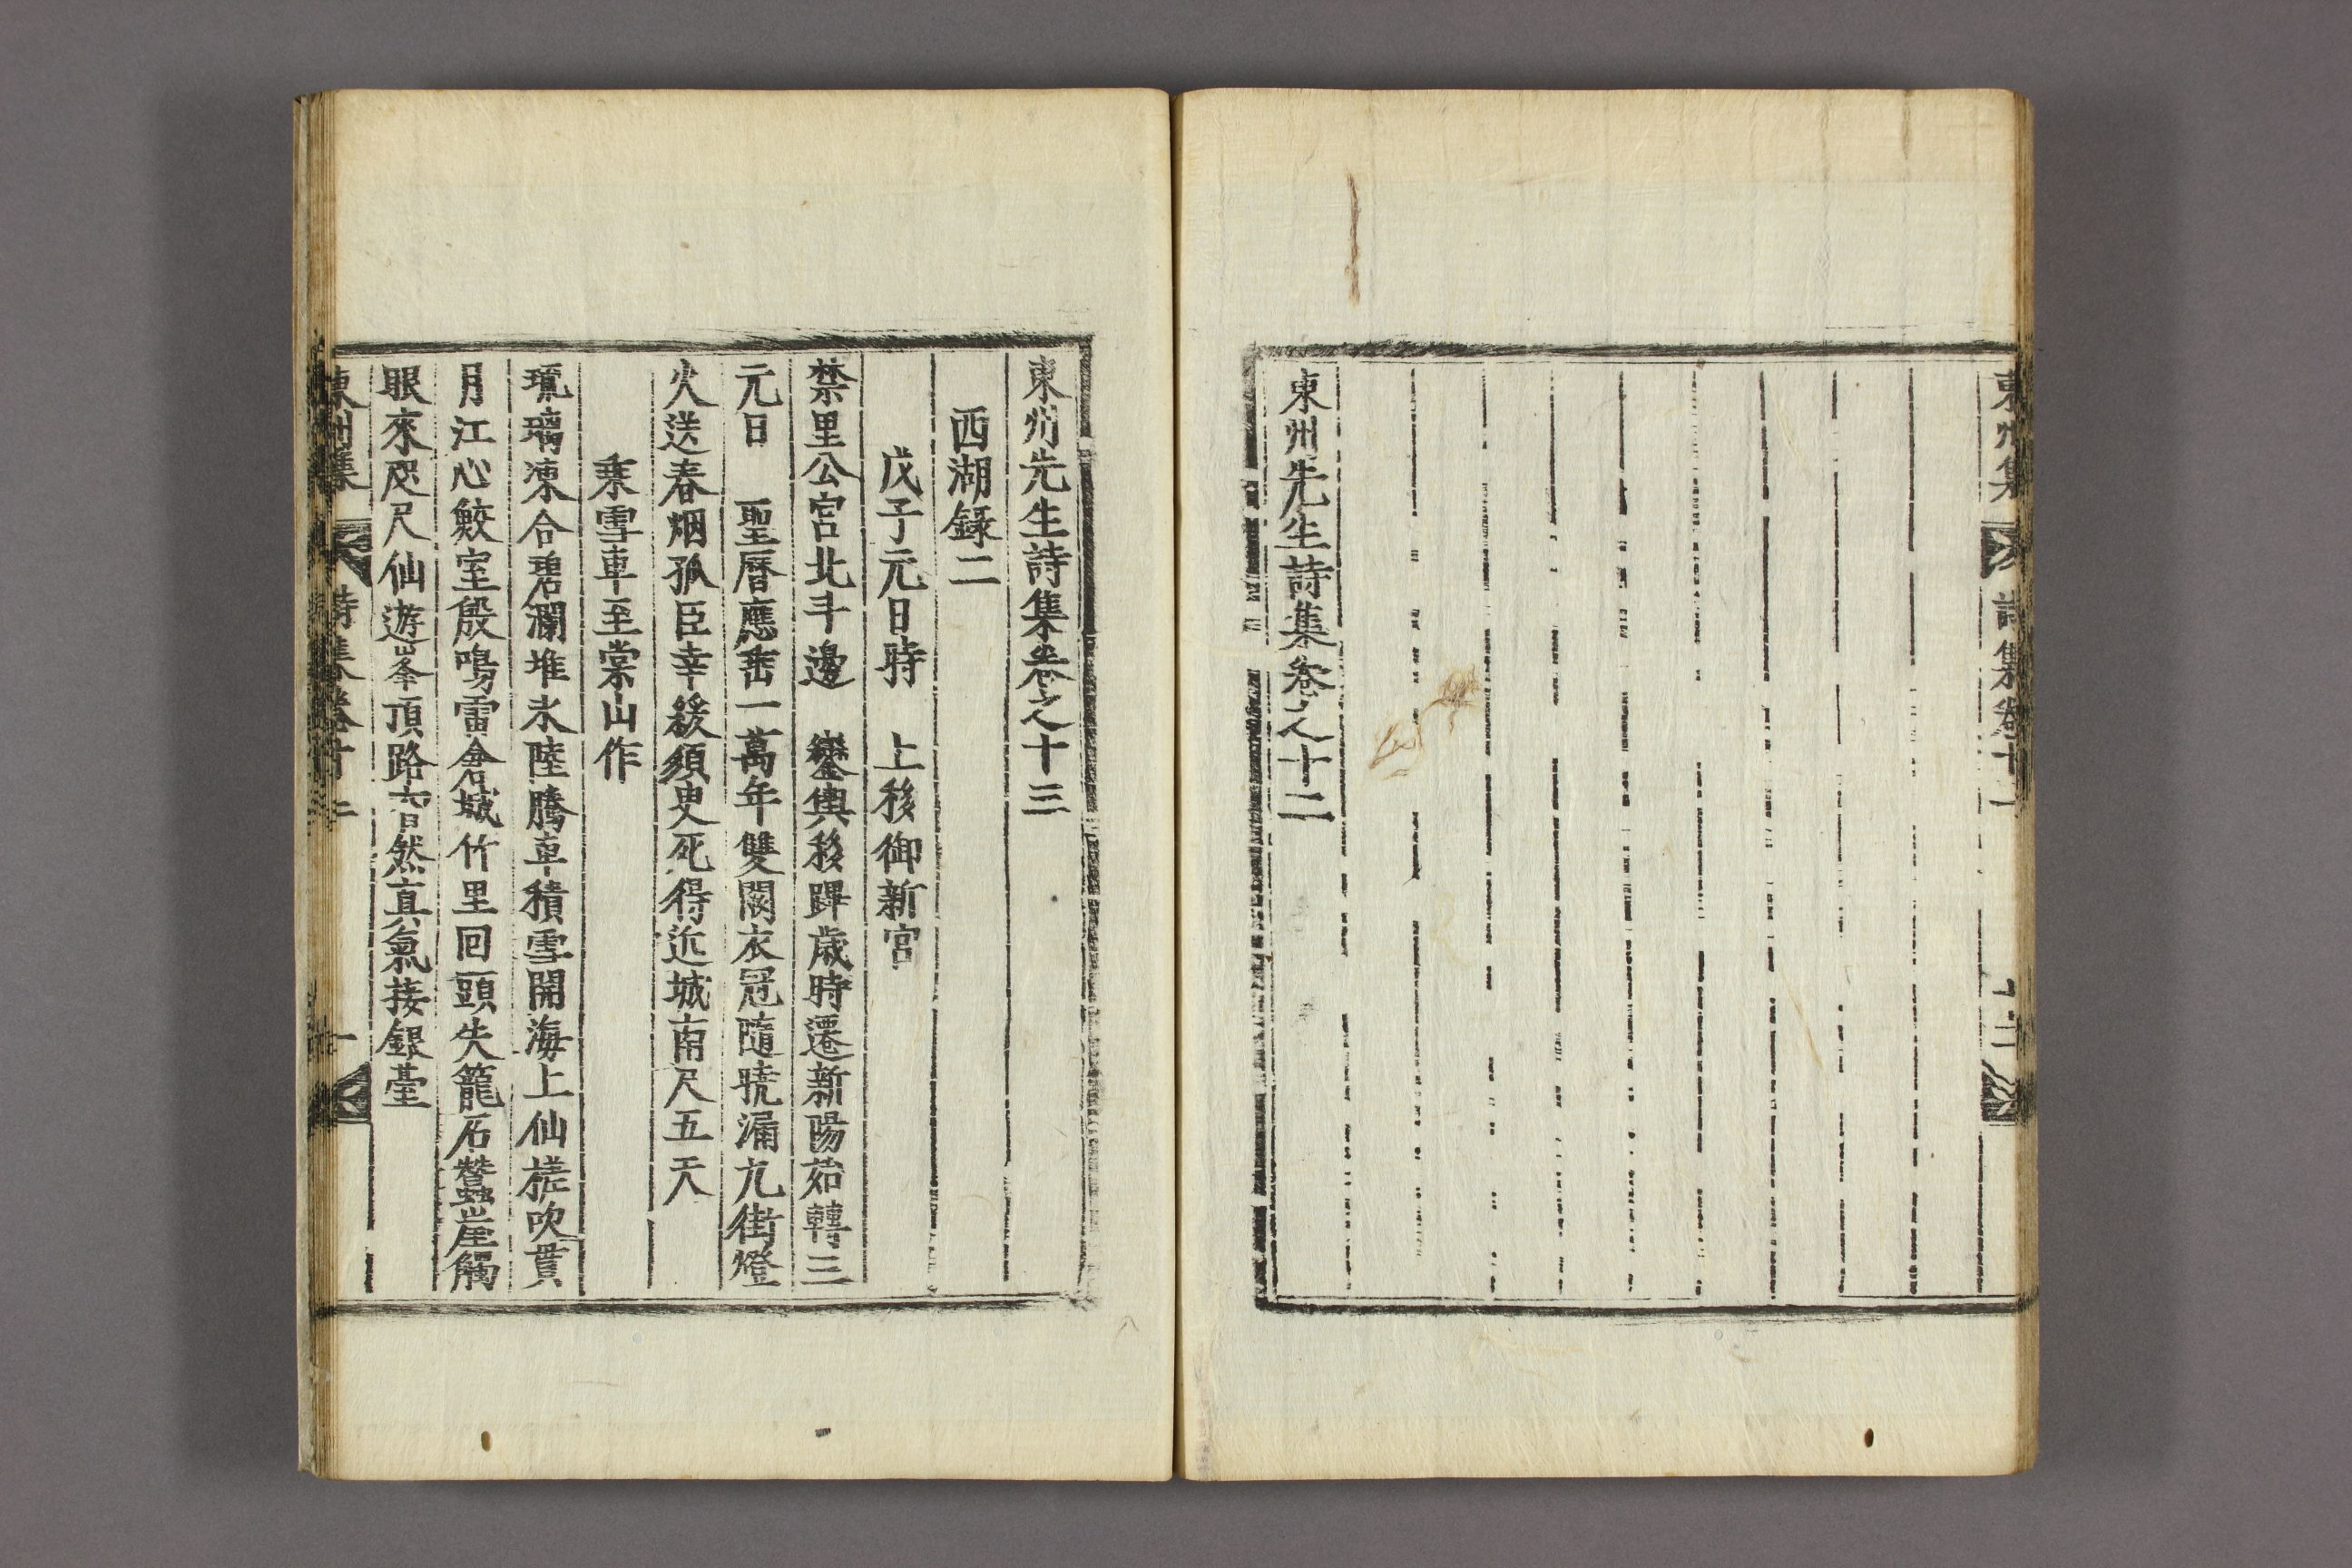 東州集 詩集卷十二
東州先生詩集卷之十二
東州先生詩集卷之十三
西湖錄二
戊子元日時 上移御新宮
禁里公宮北斗邊 鑾輿移蹕歲時遷新陽始轉三
元日 聖曆應壽一萬年雙闕衣冠隨曉漏九街燈
火送春烟孤臣幸緩須臾死得近城南尺五天
乘雪車至棠山作
琉璃凍合碧瀾堆氷陸騰車積雪開海上仙槎吹貫
月江心鮫室殷鳴雷倉城竹里回頭失籠石蠶崖觸
眼來咫尺仙遊峯頂路杳然真氣接銀臺
東州集 詩集卷十三 一